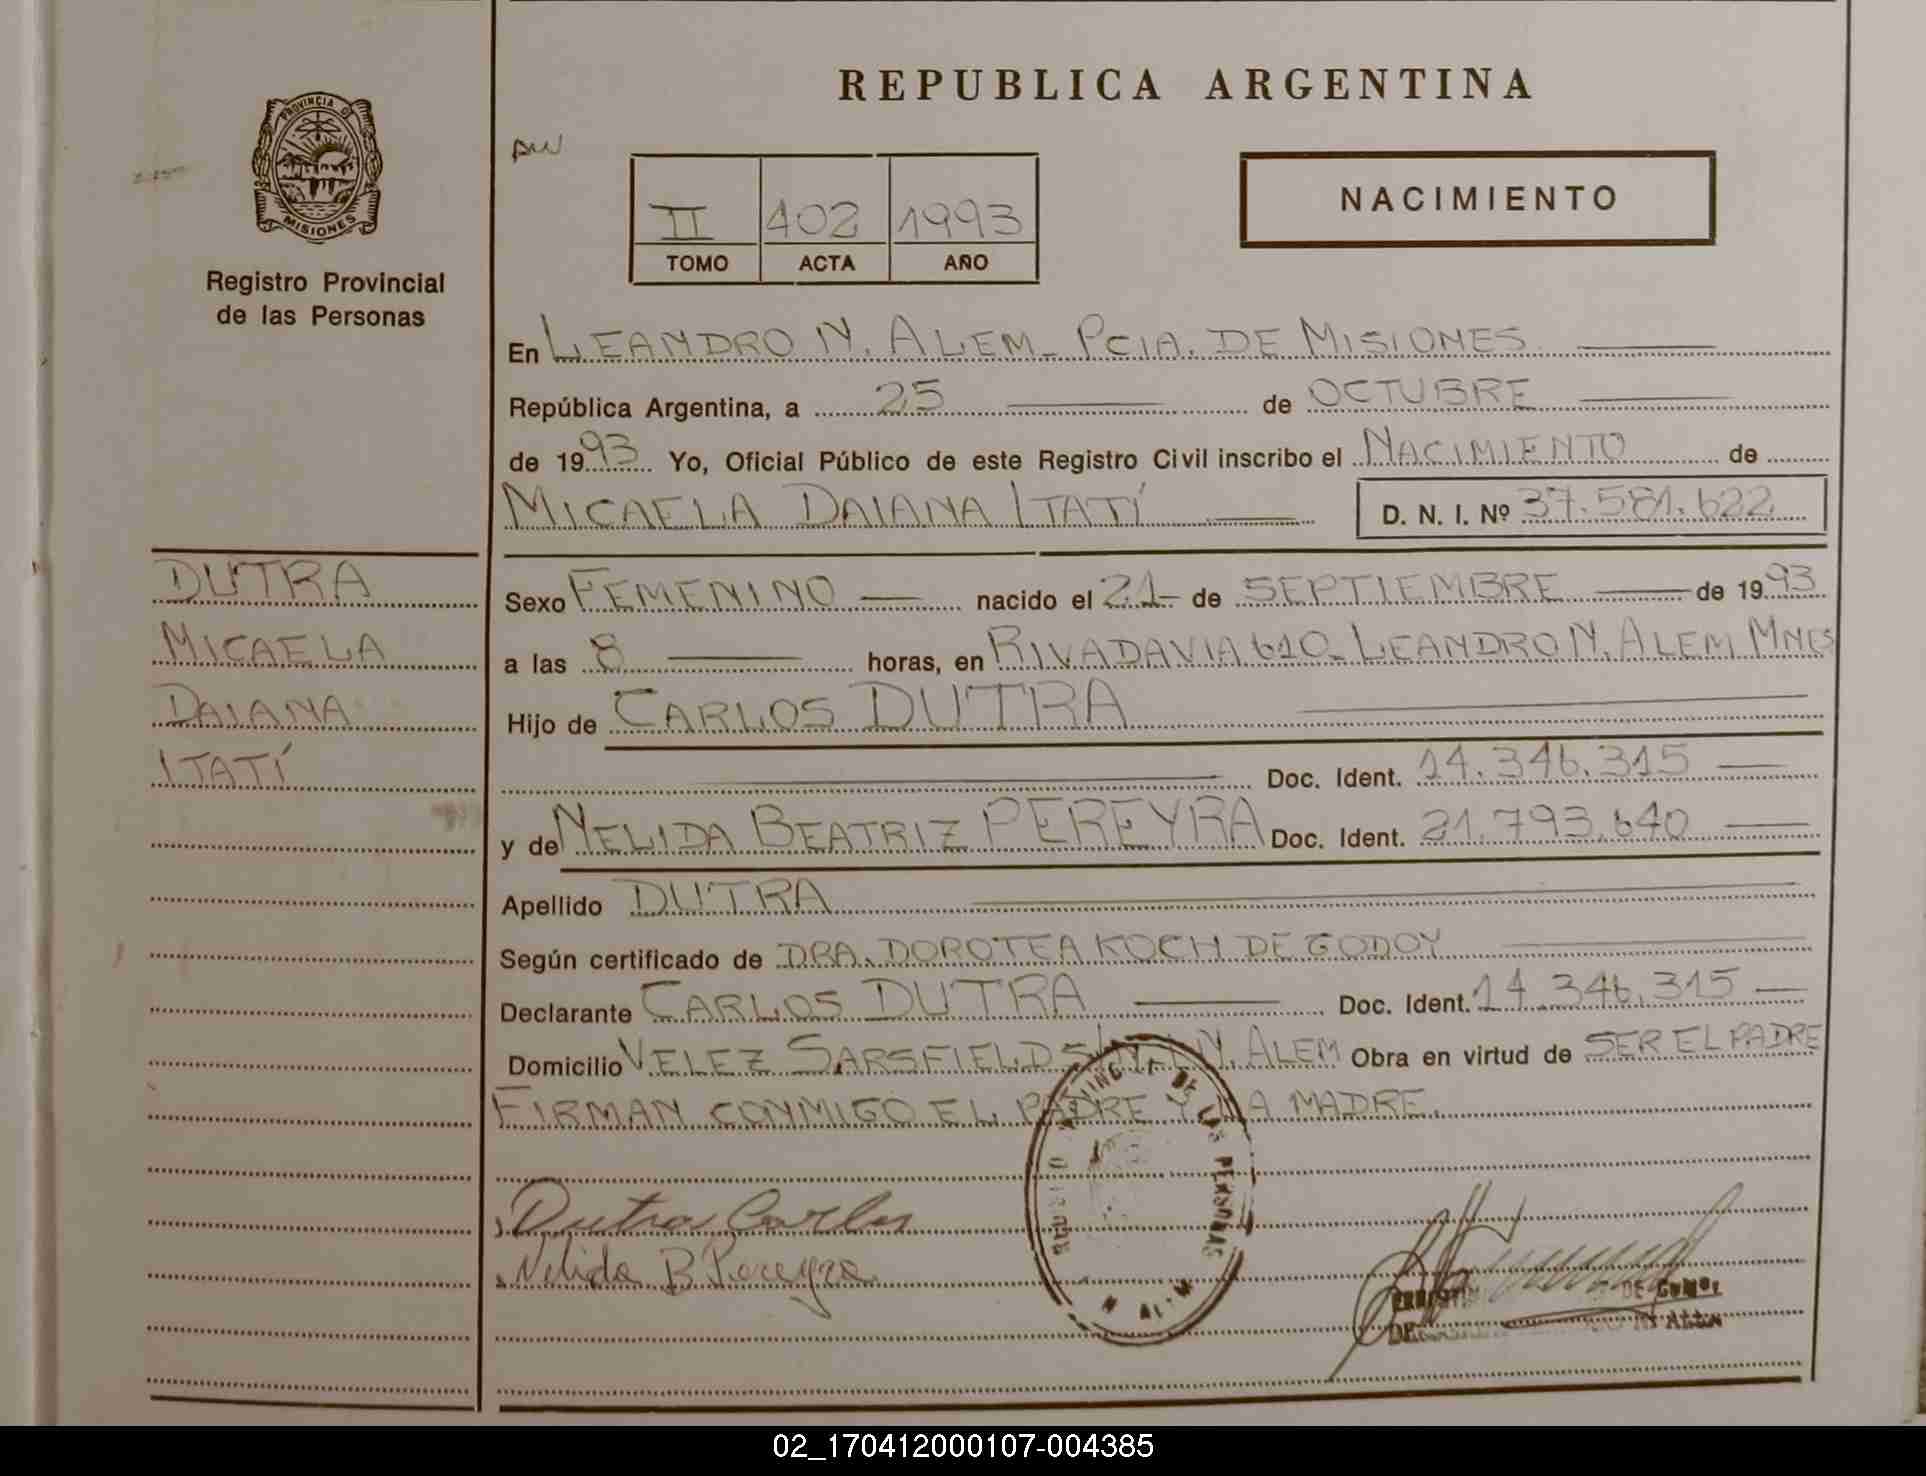 REPUBLICA ARGENTINA
PROVINCIA D
MISIONES
Registro Provincial
de las Personas
II 402 1993
TOMO ACTA AÑO
NACIMIENTO
En LEANDRO N. ALEM - PCIA. DE MISIONES
República Argentina, a 25 de OCTUBRE
de 1993 Yo, Oficial Público de este Registro Civil inscribo el NACIMIENTO de
MICAELA DAIANA ITATÍ D. N. I. Nº 37.581.622
DUTRA
MICAELA
DAIANA
ITATÍ
Sexo FEMENINO nacido el 21 de SEPTIEMBRE de 1993
a las 8 horas, en RIVADAVIA 610 - LEANDRO N. ALEM MNES
Hijo de CARLOS DUTRA
Doc. Ident. 14.346.315
y de NELIDA BEATRIZ PEREYRA Doc. Ident. 21.793.640
Apellido DUTRA
Según certificado de DRA. DOROTEA KOCH DE GODOY
Declarante CARLOS DUTRA Doc. Ident. 14.346.315
Domicilio VELEZ SARSFIELD S/N - L N. ALEM Obra en virtud de SER EL PADRE
FIRMAN CONMIGO EL PADRE Y LA MADRE.
Dutra Carlos
Nelida B Pereyra
DE LAS PERSONAS
02_170412000107-004385